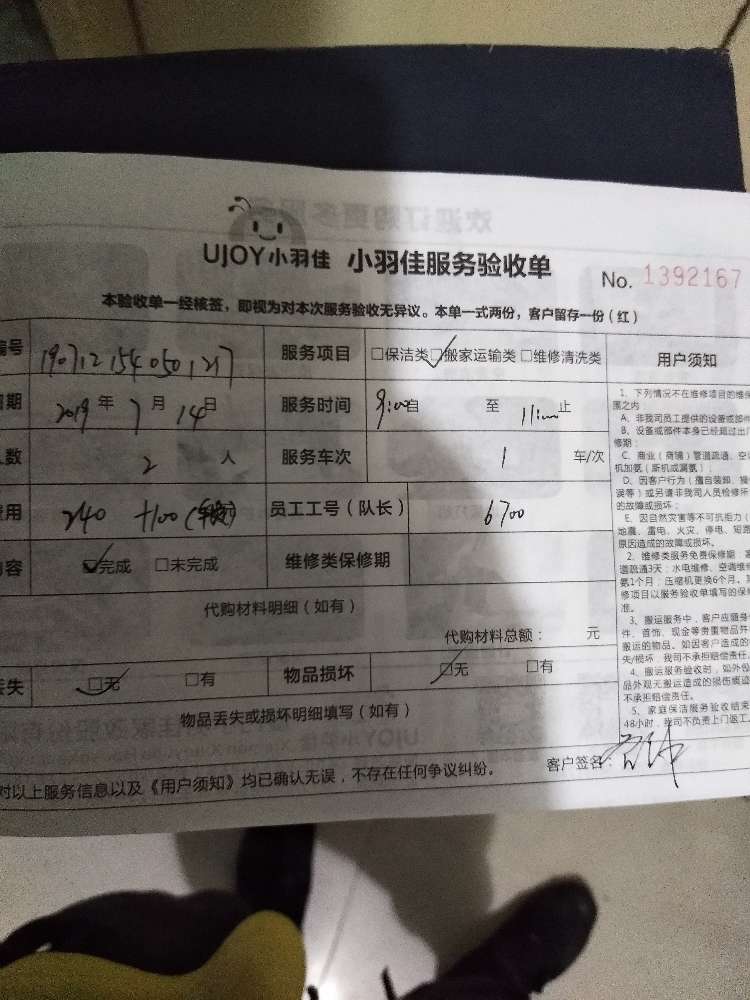 UJOY小羽佳 小羽佳服务验收单 No. 1392167
本验收单一经核签，即视为对本次服务验收无异议。本单一式两份，客户留存一份（红）
编号 190712154050127 服务项目 □保洁类 □搬家运输类 □维修清洗类 用户须知
日期 2019年7月14日 服务时间 9:00自 至 11:00止
人数 2人 服务车次 1 车/次
费用 240 +100 员工工号（队长） 6700
内容 □完成 □未完成 维修类保修期
代购材料明细（如有）
代购材料总额： 元
丢失 □无 □有 物品损坏 □无 □有
物品丢失或损坏明细填写（如有）
对以上服务信息以及《用户须知》均已确认无误，不存在任何争议纠纷。 客户签名：
1、下列情况不在维修项目的维保
围之内
A、非我司员工提供的设备或部件
B、设备或部件本身已经超过出厂
修期；
C、商业（商铺）管道疏通、空
机加氨（新机或漏氨）；
D、因客户行为（擅自装卸、操
误等）或另请非我司人员检修所
的故障或损坏；
E、因自然灾害等不可抗拒力（
地震、雷电、火灾、停电、短路
原因造成的故障或损坏。
2、维修类服务免费保修期
道疏通3天；水电维修、空调维修
氨1个月；压缩机更换6个月。
修项目以服务验收单填写的保修
准。
3、搬运服务中，客户应随身
件、首饰、现金等贵重物品
搬运的物品。如因客户造成的
失/损坏，我司不承担赔偿责任。
4、搬运服务验收时，如外包
品外观无搬运造成的损伤痕迹
不承担赔偿责任。
5、家庭保洁服务验收结束
48小时，我司不负责上门返工。